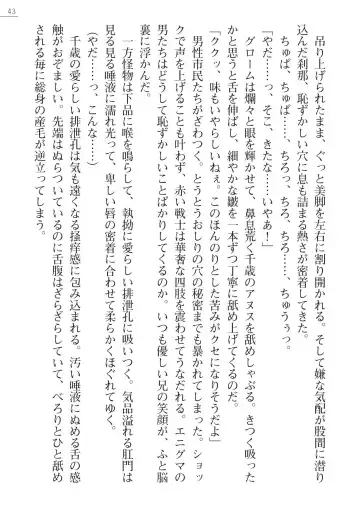 43
吊り上げられたまま、ぐっと美脚を左右に割り開かれる。そして嫌な気配が股間に潜り
込んだ刹那、恥ずかしい穴に息も詰まる熱さが密着してきた。
ちゅぱ、ちゅぱ……、ちろっ、ちろ、ちろ……、ちゅうぅっ。
「やだ……っ、そこ、きたな……いやあ!」
グロームは爛々と眼を輝かせて、鼻息荒く千歳のアヌスを舐めしゃぶる。きつく吸った
かと思うと舌を伸ばし、細やかな皺を一本ずつ丁寧に舐め上げてくるのだ。
「ククッ、味もいやらしいねぇ。このほんのりとした苦みがクセになりそうだよ」
男性市民たちがざわつく。とうとうおしりの穴の秘密までも暴かれてしまった。ショッ
クで声を上げることも叶わず、赤い戦士は華奢な四肢を震わせてうなだれる。エニグマの
男たちはどうして恥ずかしいことばかりしてくるのか。いつも優しい兄の笑顔が、ふと脳
裏に浮かんだ。
一方怪物は下品に喉を鳴らして、執拗に愛らしい排泄孔に吸いつく。気品溢れる肛門は
見る見る唾液に濡れ光って、卑しい唇の密着に合わせて柔らかくほぐれてゆく。
(やだ……っ、こんな……っ)
千歳の愛らしい排泄孔は気も遠くなる掻痒感に包み込まれる。汚い唾液にぬめる舌の感
触がおぞましい。先端はぬらついているのに舌腹はざらざらしていて、べろりとひと舐め
される毎に総身の産毛が逆立ってしまう。